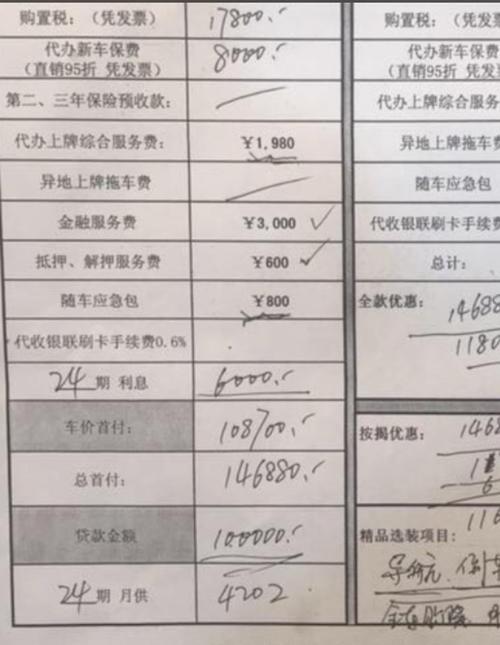 购置税：（凭发票） 17800.-
代办新车保费 8000.-
（直销95折 凭发票）
第二、三年保险预收款：
代办上牌综合服务费： ¥1,980
异地上牌拖车费
金融服务费 ¥3,000
抵押、解押服务费 ¥600
随车应急包 ¥800
代收银联刷卡手续费0.6%
24期 利息 6000.-
车价首付： 108700.-
总首付： 146880.-
贷款金额 100000.-
24期 月供 4202
购置税：（凭发
代办新车保
（直销95折 凭
代办上牌综合服务
异地上牌拖车
随车应急包
代收银联刷卡手续
总计：
全款优惠： 14688
1180
按揭优惠： 1468
6
精品选装项目： 116